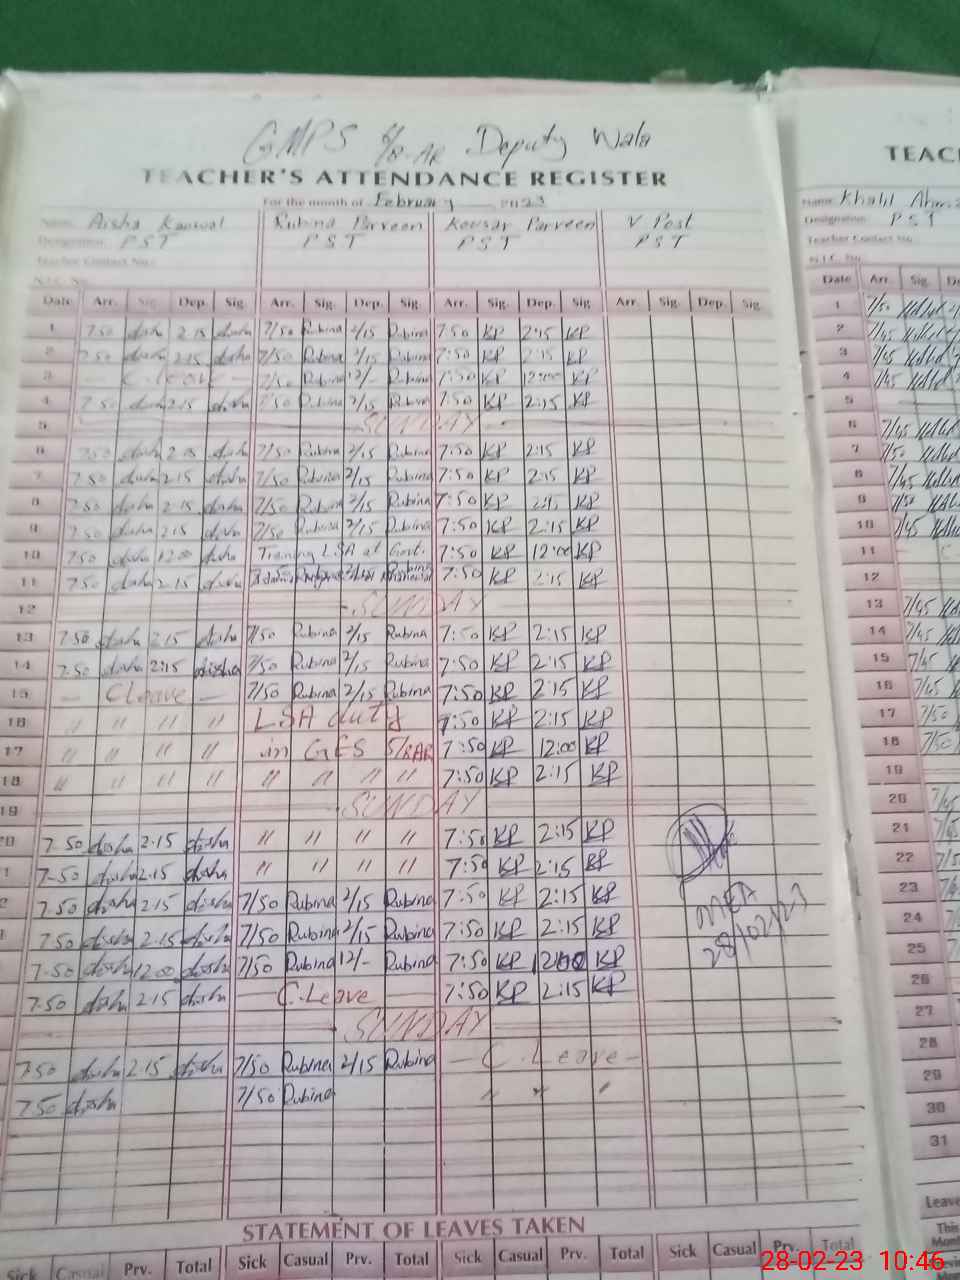 GMPS 5/8-AR Deputy Wala
TEACHER'S ATTENDANCE REGISTER
For the month of February 2023
Name Aisha Kanwal Rubina Parveen Kousar Parveen V Post
Designation PST PST PST PST
Teacher Contact No.:
N.I.C. No.
Date Arr. Sig. Dep. Sig. Arr. Sig. Dep. Sig. Arr. Sig. Dep. Sig. Arr. Sig. Dep. Sig.
1 7.50 Aisha 2.15 Aisha 7/50 Rubina 2/15 Rubina 7:50 KP 2:15 KP
2 7.50 Aisha 2.15 Aisha 7/50 Rubina 2/15 Rubina 7:50 KP 2:15 KP
3 — C.leave — 7/50 Rubina 12/- Rubina 7:50 KP 12:00 KP
4 7.50 Aisha 2.15 Aisha 7/50 Rubina 2/15 Rubina 7:50 KP 2:15 KP
5 SUNDAY
6 7.50 Aisha 2.15 Aisha 7/50 Rubina 2/15 Rubina 7:50 KP 2:15 KP
7 7.50 Aisha 2.15 Aisha 7/50 Rubina 2/15 Rubina 7:50 KP 2:15 KP
8 7.50 Aisha 2.15 Aisha 7/50 Rubina 2/15 Rubina 7:50 KP 2:15 KP
9 7.50 Aisha 2.15 Aisha 7/50 Rubina 2/15 Rubina 7:50 KP 2:15 KP
10 7.50 Aisha 12.00 Aisha Training LSA at Govt. 7:50 KP 12:00 KP
11 7.50 Aisha 2.15 Aisha 7:50 KP 2:15 KP
12 SUNDAY
13 7.50 Aisha 2.15 Aisha 7/50 Rubina 2/15 Rubina 7:50 KP 2:15 KP
14 7.50 Aisha 2:15 Aisha 7/50 Rubina 2/15 Rubina 7:50 KP 2:15 KP
15 — C leave — 7/50 Rubina 2/15 Rubina 7:50 KP 2:15 KP
16 " " " " LSA duty 7:50 KP 2:15 KP
17 " " " " in GES 5/8AR 7:50 KP 12:00 KP
18 " " " " " " " " 7:50 KP 2:15 KP
19 SUNDAY
20 7.50 Aisha 2.15 Aisha " " " " 7:50 KP 2:15 KP
7.50 Aisha 2.15 Aisha " " " " 7:50 KP 2:15 KP
7.50 Aisha 2.15 Aisha 7/50 Rubina 2/15 Rubina 7:50 KP 2:15 KP
7.50 Aisha 2.15 Aisha 7/50 Rubina 2/15 Rubina 7:50 KP 2:15 KP
7.50 Aisha 12.00 Aisha 7/50 Rubina 12/- Rubina 7:50 KP 12:00 KP
7.50 Aisha 2.15 Aisha — C.Leave — 7:50 KP 2:15 KP
SUNDAY
7.50 Aisha 2.15 Aisha 7/50 Rubina 2/15 Rubina — C. Leave —
7.50 Aisha 7/50 Rubina " " "
MEA
28/02/23
STATEMENT OF LEAVES TAKEN
Sick Casual Prv. Total Sick Casual Prv. Total Sick Casual Prv. Total Sick Casual Prv. Total
TEAC
Name Khalil
Designation PST
Teacher Contact No.
N.I.C. No.
Date Arr. Sig. De
1 7/50
2 7/45
3 7/45
4 7/45
5
6 7/45
7 7/50
8 7/45
9 7/50
10 7/45
11
12
13 7/45
14 7/45
15 7/45
16 7/45
17 7/50
18 7/50
19
20
21
22
23
24
25
26
27
28
29
30
31
Leave
This
Mont
28-02-23 10:46